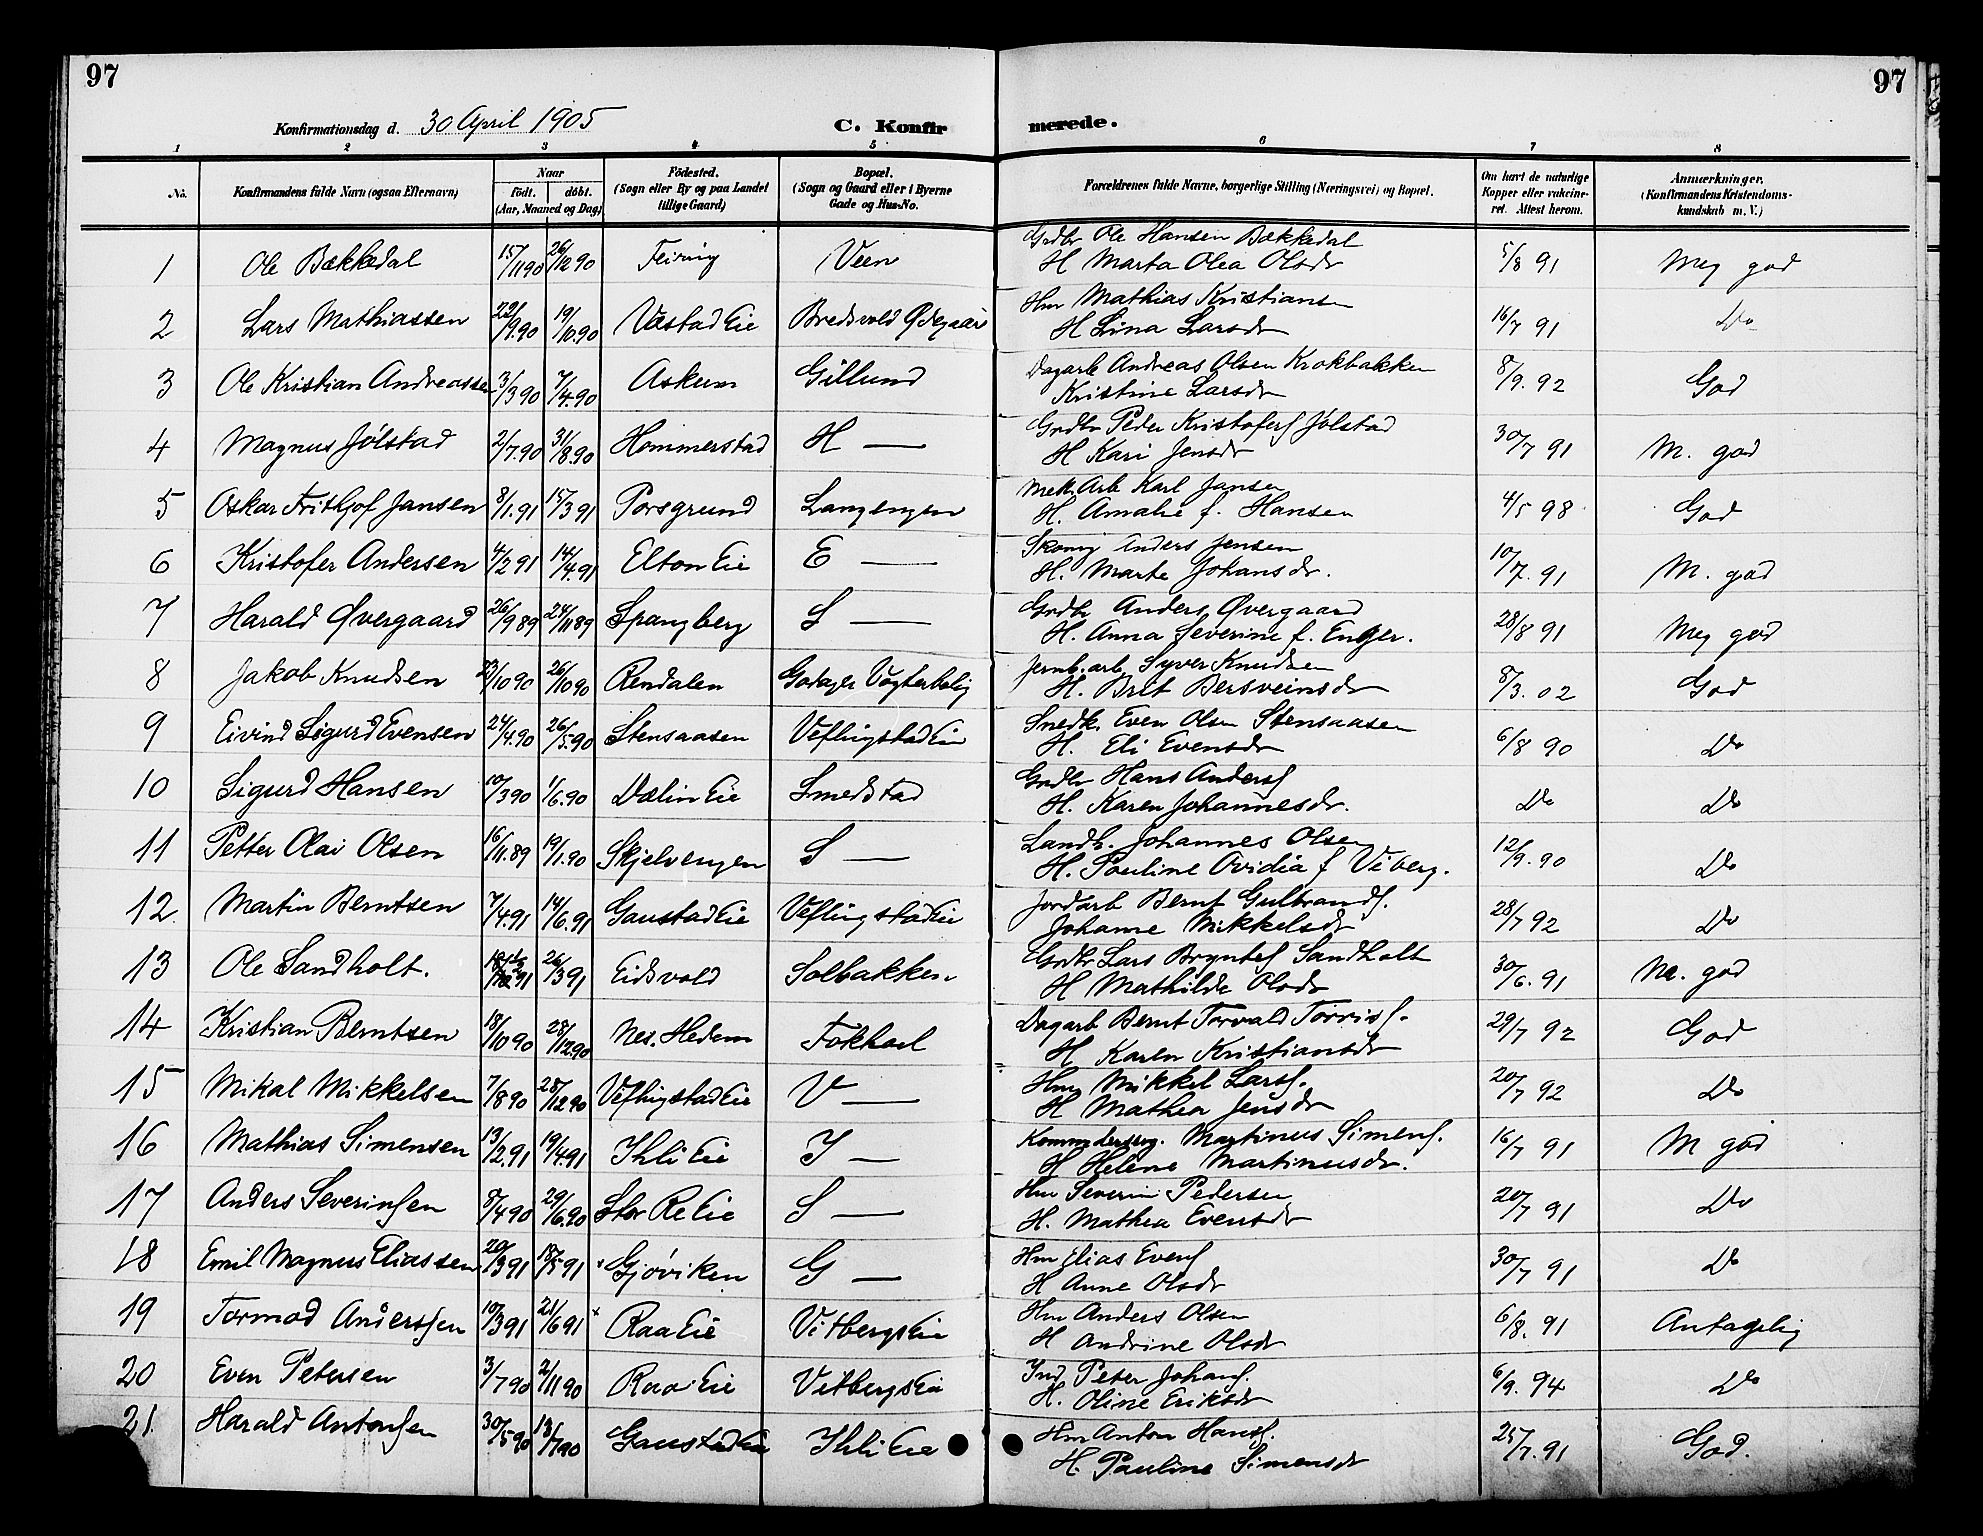 97
97
Konfirmationsdag d. 30 April 1905
C. Konfir
merede.
1 2 3 4 5 6 7 8
No.
Konfirmandens fulde Navn (ogsaa Efternavn)
Naar
födt. döbt.
(Aar, Maaned og Dag)
Födested.
(Sogn eller By og paa Landet
tillige Gaard)
Bopæl.
(Sogn og Gaard eller i Byerne
Gade og Hus-No.
Forældrenes fulde Navne, borgerlige Stilling (Næringsvei) og Bopæl.
Om havt de naturlige
Kopper eller vakcine-
ret. Attest herom.
Anmærkninger.
(Konfirmandens Kristendoms-
kundskab m. V.)
1 Ole Bækkedal 15/11 90 26/12 90 Feiring Veen Grdbr Ole Hansen Bækkedal 5/8 91 Meg god
H Marta Olea Olsdr
2 Lars Mathiassen 22/9.90 19/10.90 Væstad Eie Bredsvold Ødegaard Hm Mathias Kristiansen 16/7 91 Do
H Lina Larsdr
3 Ole Kristian Andreassen 3/3 90 7/4.90 Askum Gillund Dagarb Andreas Olsen Krokbakken 8/9. 92 God
Kristine Larsdr
4 Magnus Jølstad 2/7.90 31/8.90 Hommerstad H — Grdbr Peder Kristofers Jølstad 30/7 91 M. god
H Kari Jensdr
5 Oskar Frithjof Jansen 8/1.91 15/3 91 Porsgrund Langengen Mek. Arb Karl Jansen 4/5 98 God
H. Amalie f. Hansen
6 Kristofer Andersen 4/2 91 14/4.91 Elton Eie E — Skomg Anders Jensen 10/7. 91 M. god
H. Marte Johansdr.
7 Harald Øvergaard 26/9 89 24/11 89 Spangberg S — Grdbr Anders Øvergaard 28/8 91 Meg god
H. Anna Severine f. Enger.
8 Jakob Knudsen 23/10 90 26/10 90 Rendalen Godager Vogterbolig Jernb. arb Syver Knudsen 8/3. 02 God
H. Brit Bersveinsdr
9 Eivind Sigurd Evensen 24/4.90 26/5.90 Stensaasen Veflingstad Eie Snedk. Even Olsen Stensaasen 6/8 90 Do
H. Eli Evensdr
10 Sigurd Hansen 10/3 90 1/6.90 Dælin Eie Smedstad Grdbr Hans Anders Do Do
H. Karen Johannesdr.
11 Petter Olai Olsen 16/11.89 19/1.90 Skjelvengen S — Landh. Johannes Olsen 12/9. 90 Do
H. Pauline Ovidia f Viberg.
12. Martin Berntsen 7/4.91 14/6.91 Gaustad Eie Veflingstad Eie Jordarb Bernt Gulbrands. 28/7 92 Do
Johanne Mikkelsdr
13 Ole Sandholt. 91 26/3 91 Eidsvold Solbakken Grdbr Lars Bryntes Sandholt 30/6. 91 M. god
H Mathilde Olsdr
14 Kristian Berntsen 18/10 90 28/12.90 Nes. Hedem Tokhol Dagarb Bernt Torvald Torris. 29/7 92 God
H Karen Kristiansdr
15 Mikal Mikkelsen 7/8 90 28/12 90 Veflingstad Eie V — Hm Mikkel Lars. 20/7 92 Do
H Mathea Jensdr
16 Mathias Simensen 13/2.91 19/4.91 Ihli Eie I — Martinus Simens. 16/7 91 M god
H Helene Martinusdr.
17 Anders Severinsen 8/4 90 29/6.90 Stor Re Eie S — Hm Severin Pedersen 20/7 91 Do
H. Mathea Evensdr
18 Emil Magnus Eliassen 20/3 91 18/5 91 Gjøviken G — Hm Elias Evens 30/7 91 Do
H Anne Olsdr
19 Tormod Anderssen 10/3 91 21/6 91 × Raa Eie Vitbergs Eie Hm Anders Olsen 6/8. 91 Antagelig
H Andrine Olsdr
20 Even Petersen 3/7 90 2/11 90 Raa Eie Vitbergs Eie Ind Peter Johans. 6/9. 94 Do
H. Oline Eriksdr
21. Harald Antonsen 30/5 90 13/7 90 Gaustad Eie Ihli Eie Hm Anton Hans. 25/7. 91 God.
H. Pauline Simensdr